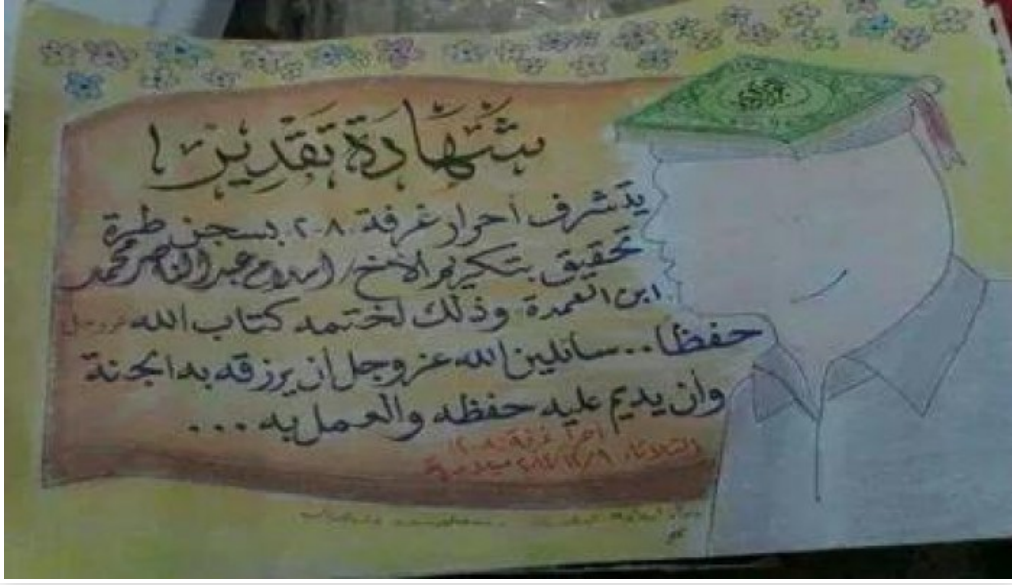 شهادة تقدير!
يتشرف أحرار غرفة ٢٠٨ بسجن طرة
تحقيق بتكريم الأخ/ اسلام عبد الناصر محمد
ابن العمدة وذلك لختمه كتاب الله عزوجل
حفظا.. سائلين الله عز وجل ان يرزقه به الجنة
وأن يديم عليه حفظه والعمل به ...
أحرار غرفة ٢٠٨
الثلاثاء ٢٠١٤/١٢/٩